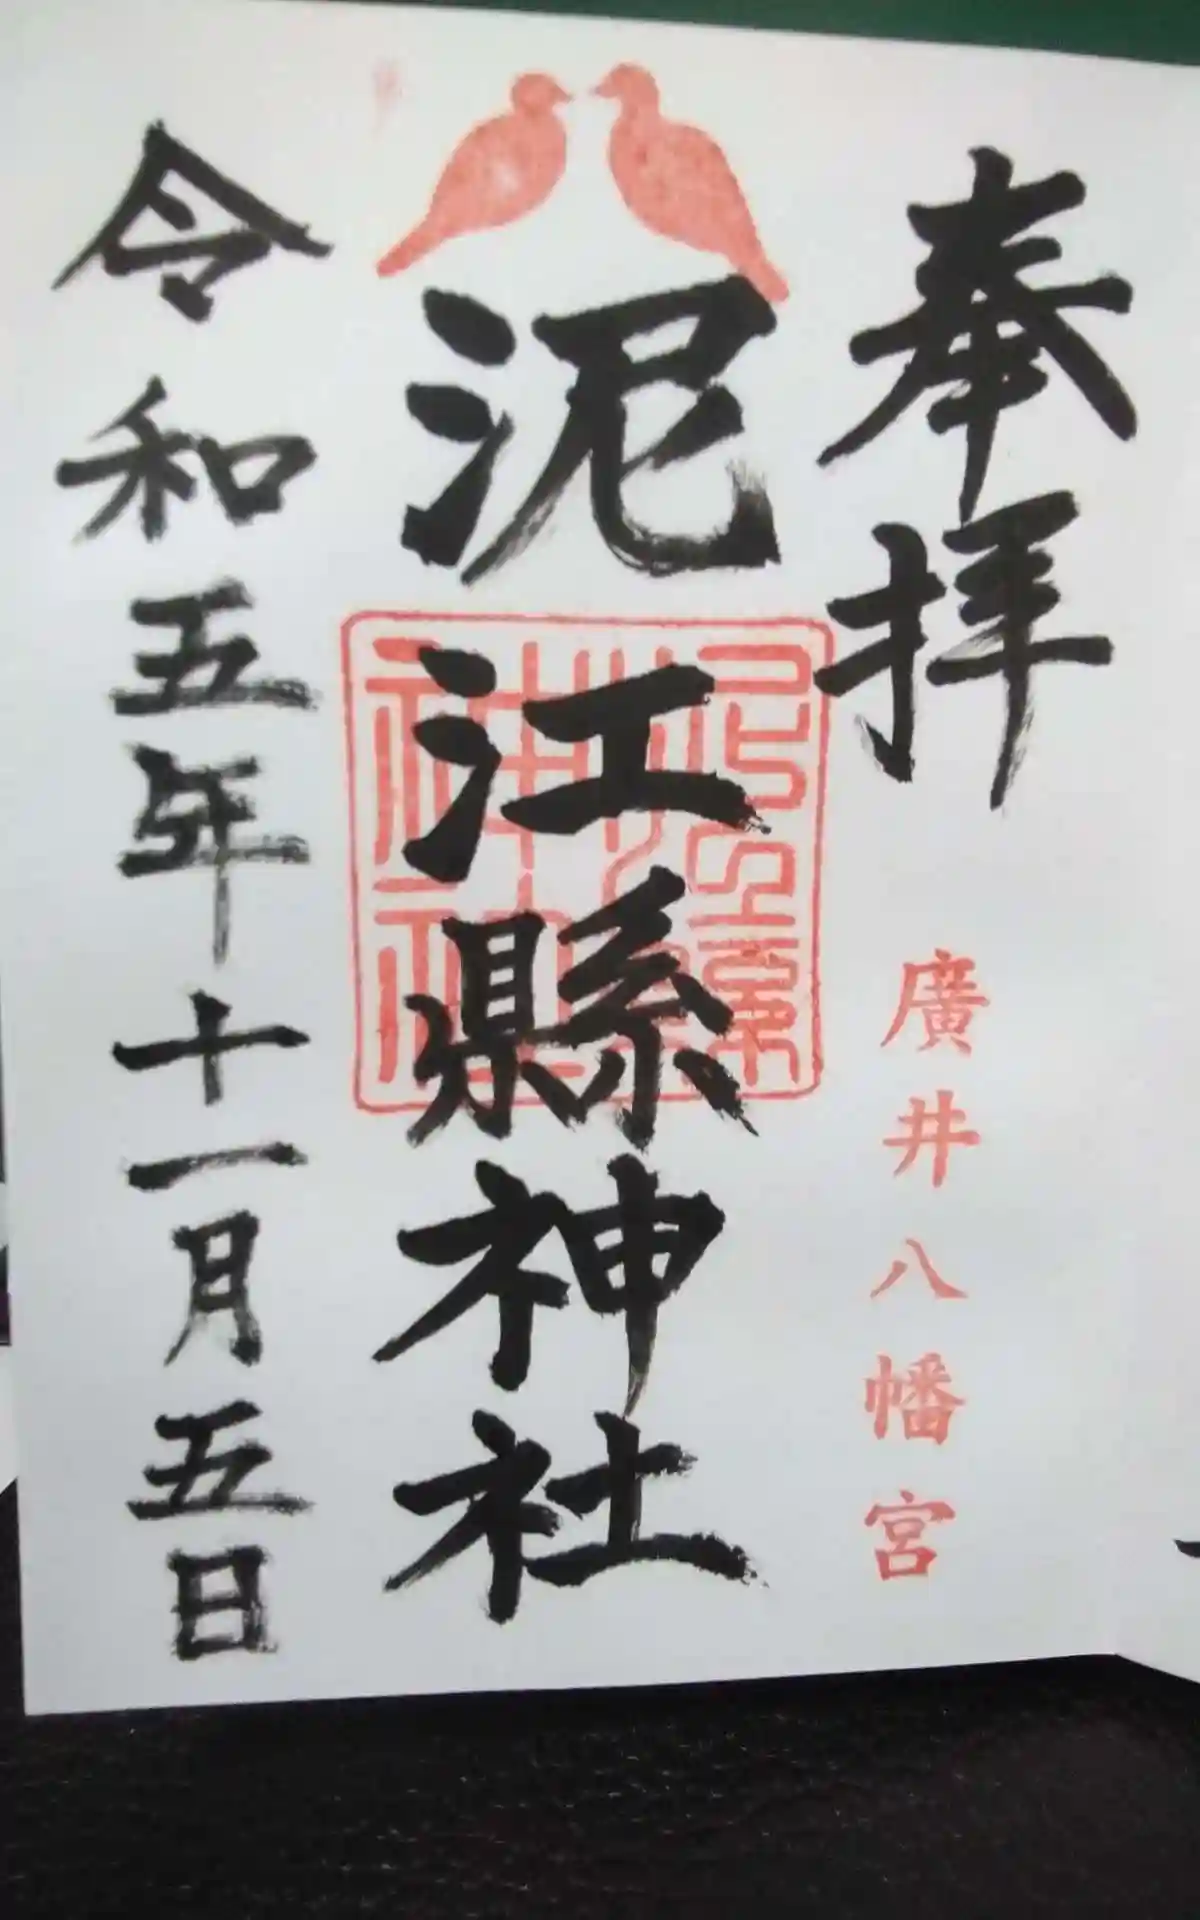 奉拝
廣井八幡宮
泥江縣神社
令和五年十一月五日